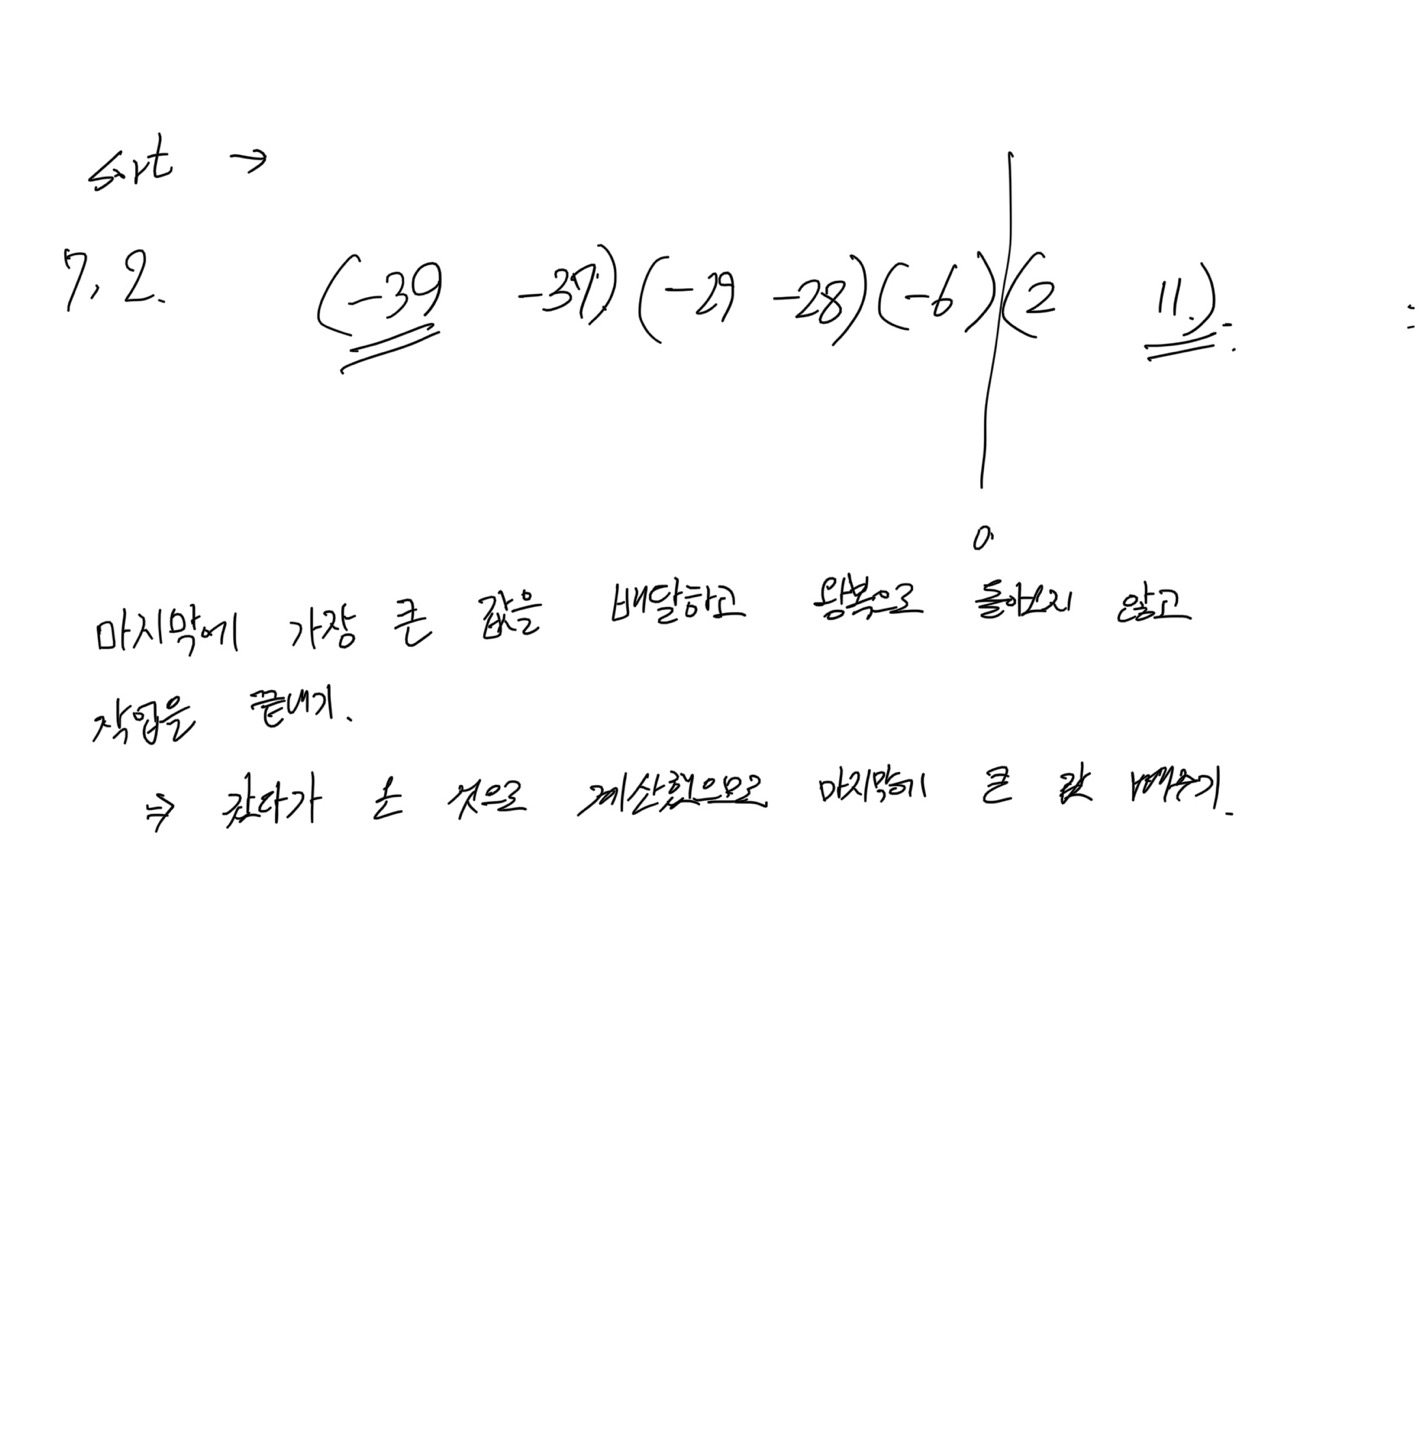 sort →
7, 2. (-39 -37) (-29 -28) (-6) (2 11).
0
마지막에 가장 큰 값을 배달하고 왕복으로 돌아오지 않고
작업을 끝내기.
⇒ 갔다가 온 것으로 계산했으므로 마지막에 큰 값 빼주기.